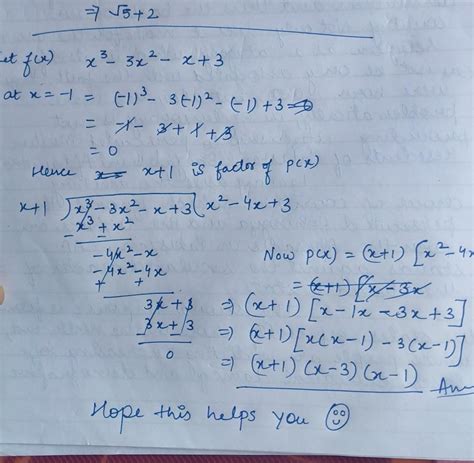 ⇒ √5+2
et f(x) x³- 3x²- x+3
at x = -1 = (-1)³- 3(-1)² - (-1) +3
= -1- 3+1+3
= 0
Hence x+1 is factor of p(x)
x+1 ) x³-3x²-x+3 ( x²-4x+3
x³+x²
-4x²-x
-4x²-4x
+ +
3x+3
3x+3
0
Now p(x) = (x+1) [x²-4x
= (x+1) [x-3x
⇒ (x+1) [x-1x-3x+3]
⇒ (x+1) [x(x-1) -3(x-1)]
⇒ (x+1) (x-3) (x-1)
Hope this helps you ☺